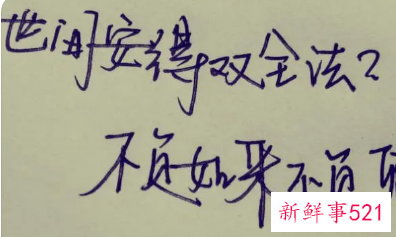 世间安得双全法？
不负如来不负
新鲜事521